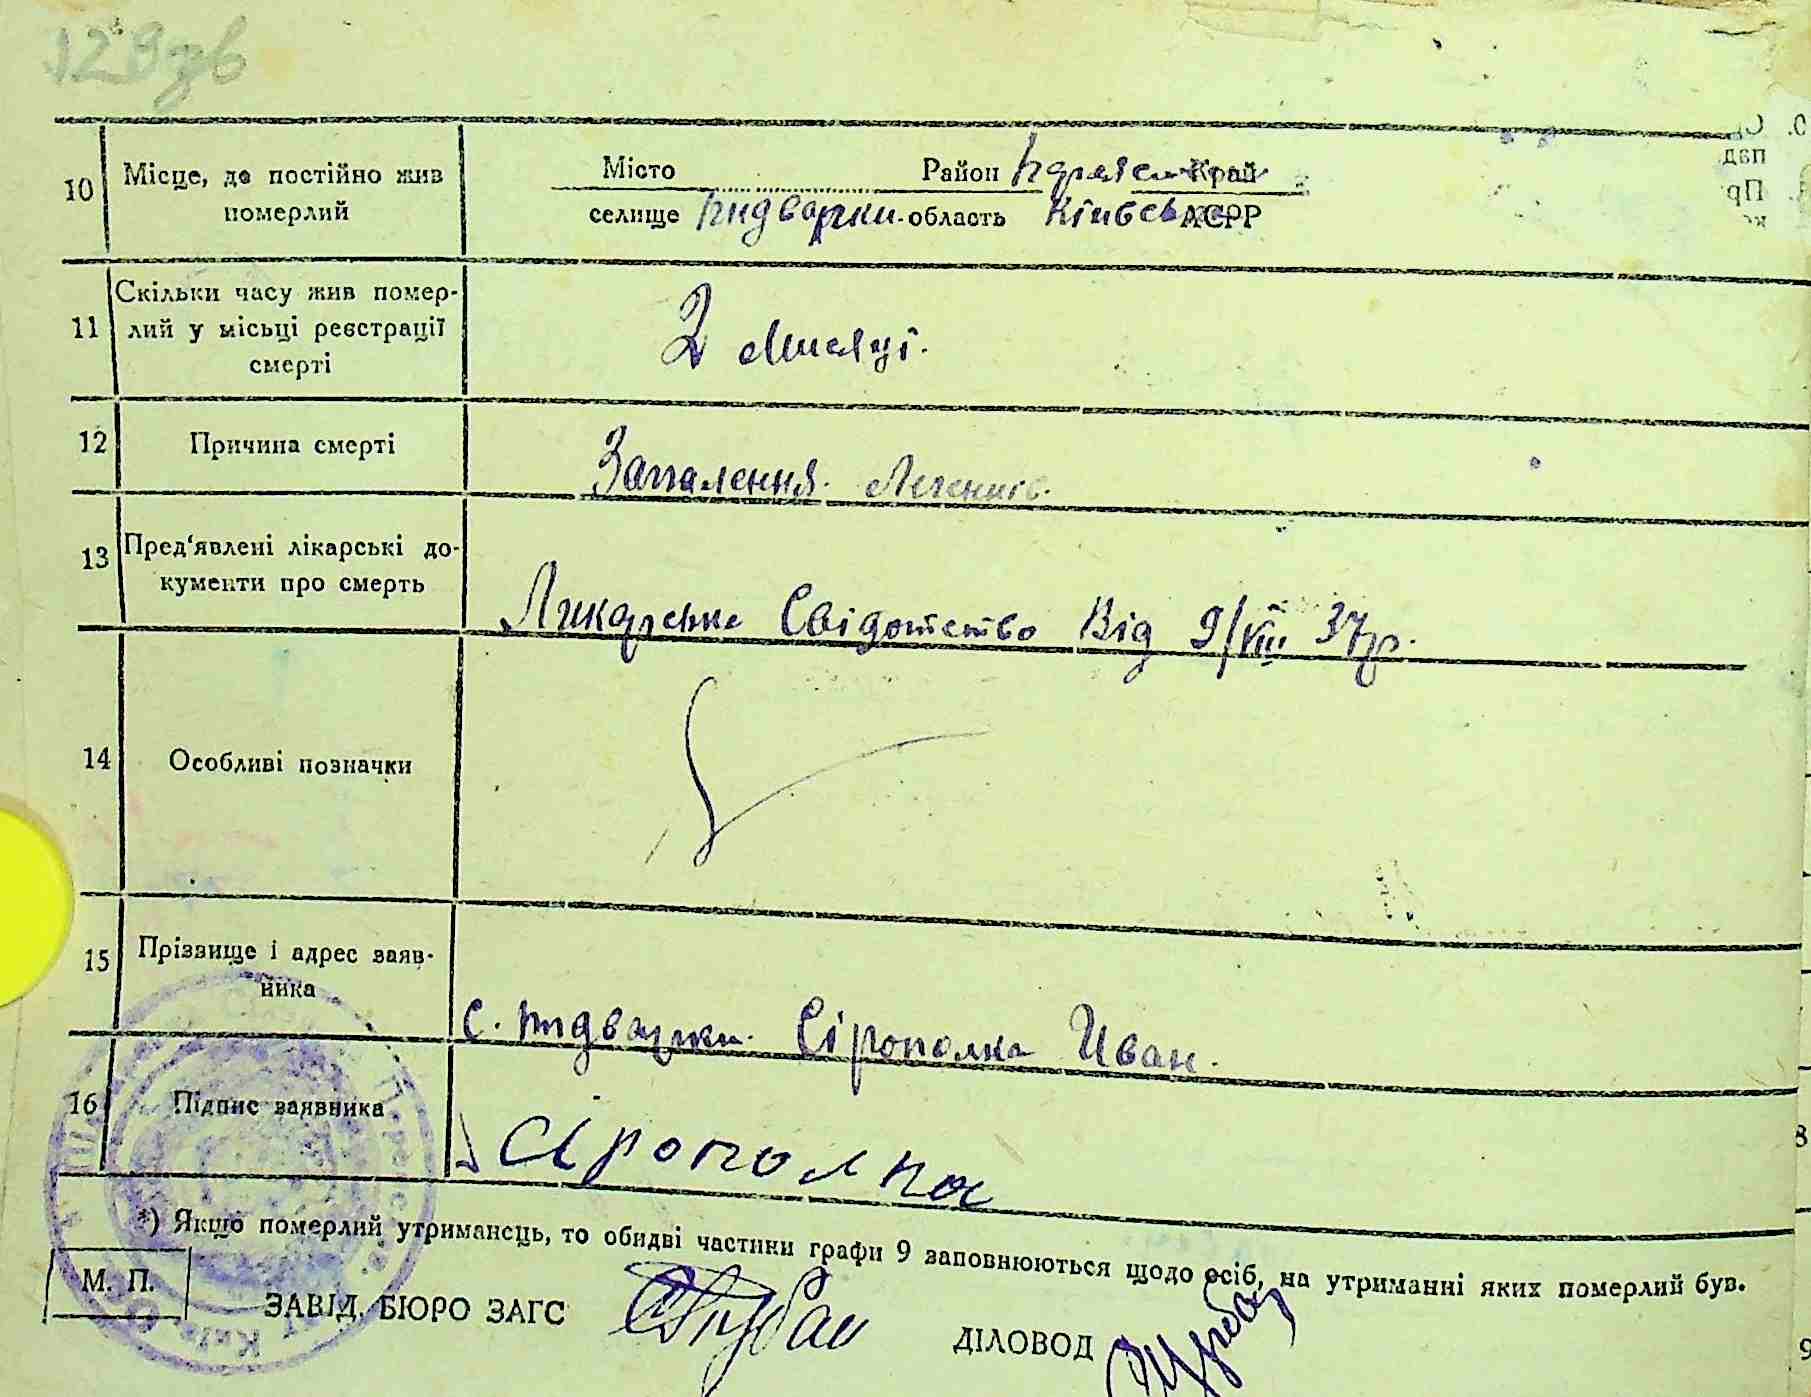 129зв
10 Місце, де постійно жив померлий
Місто Район Переяслів Край
селище Пидварки. область Київська АСРР
11 Скільки часу жив помер-
лий у місьці реєстрації
смерті
2 Мисяці.
12 Причина смерті
Запалення. Легенив.
13 Пред'явлені лікарські до-
кументи про смерть
Ликарське Свідотство Від 9/VIII 37р.
14 Особливі позначки
15 Прізвище і адрес заяв-
ника
с. Пидварки. Сірополка Иван.
16 Підпис заявника
Сірополка
*) Якщо померлий утриманець, то обидві частини графи 9 заповнюються щодо осіб, на утриманні яких померлий був.
М. П.
ЗАВІД. БЮРО ЗАГС
ДІЛОВОД